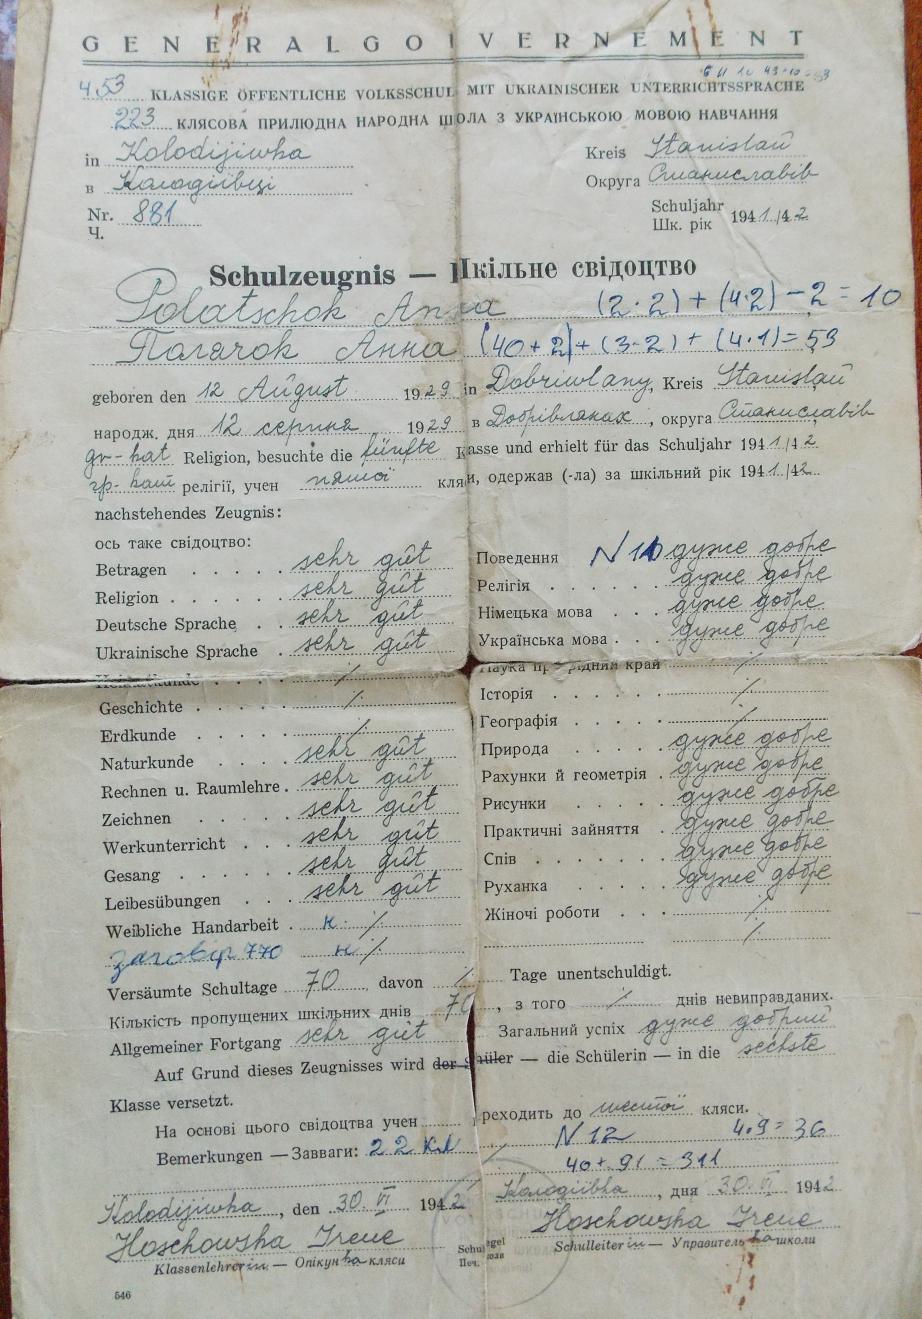 GENERALGOUVERNEMENT
453 KLASSIGE ÖFFENTLICHE VOLKSSCHUL MIT UKRAINISCHER UNTERRICHTSSPRACHE
223 КЛЯСОВА ПРИЛЮДНА НАРОДНА ШОЛА З УКРАЇНСЬКОЮ МОВОЮ НАВЧАННЯ
in Kolodijiwka Kreis Stanislau
в Колодіївці Округа Станиславів
Nr. 881 Schuljahr 1941/42
Ч. Шк. рік
Schulzeugnis — Шкільне свідоцтво
Polatschok Anna (2·2)+(4·2)-2=10
Полячок Анна (40+2)+(3-2)+(4·1)=53
geboren den 12 August 1929 in Dobriwlany, Kreis Stanislau
народж. дня 12 серпня 1929 в Добрівлянах, округа Станиславів
gr-kat Religion, besuchte die fünfte Klasse und erhielt für das Schuljahr 1941/42
гр-кат релігії, учен пятої кляси, одержав (-ла) за шкільний рік 1941/42
nachstehendes Zeugnis:
ось таке свідоцтво:
Betragen sehr gut Поведення N 10 дуже добре
Religion sehr gut Релігія дуже добре
Deutsche Sprache sehr gut Німецька мова дуже добре
Ukrainische Sprache sehr gut Українська мова дуже добре
Heimatkunde ⁒ Наука пр рідний край ⁒
Geschichte ⁒ Історія ⁒
Erdkunde ⁒ Географія ⁒
Naturkunde sehr gut Природа дуже добре
Rechnen u. Raumlehre sehr gut Рахунки й геометрія дуже добре
Zeichnen sehr gut Рисунки дуже добре
Werkunterricht sehr gut Практичні зайняття дуже добре
Gesang sehr gut Спів дуже добре
Leibesübungen sehr gut Руханка дуже добре
Weibliche Handarbeit н. ⁒ Жіночі роботи ⁒
заговір 770 н ⁒ ⁒
Versäumte Schultage 70 davon ⁒ Tage unentschuldigt.
Кількість пропущених шкільних днів 70, з того ⁒ днів невиправданих.
Allgemeiner Fortgang sehr gut Загальний успіх дуже добрий
Auf Grund dieses Zeugnisses wird der Schüler — die Schülerin — in die sechste
Klasse versetzt.
На основі цього свідоцтва учен реходить до шестої кляси.
Bemerkungen — Завваги: 22 кл N 12 4.9=36
40+91=311
Kolodijiwka, den 30. VI 1942 Колодіївка, дня 30. VI 1942
Hoschowska Irene Hoschowska Irene
Klassenlehrerin. — Опікунка кляси Schulleiterin — Управителька школи
546